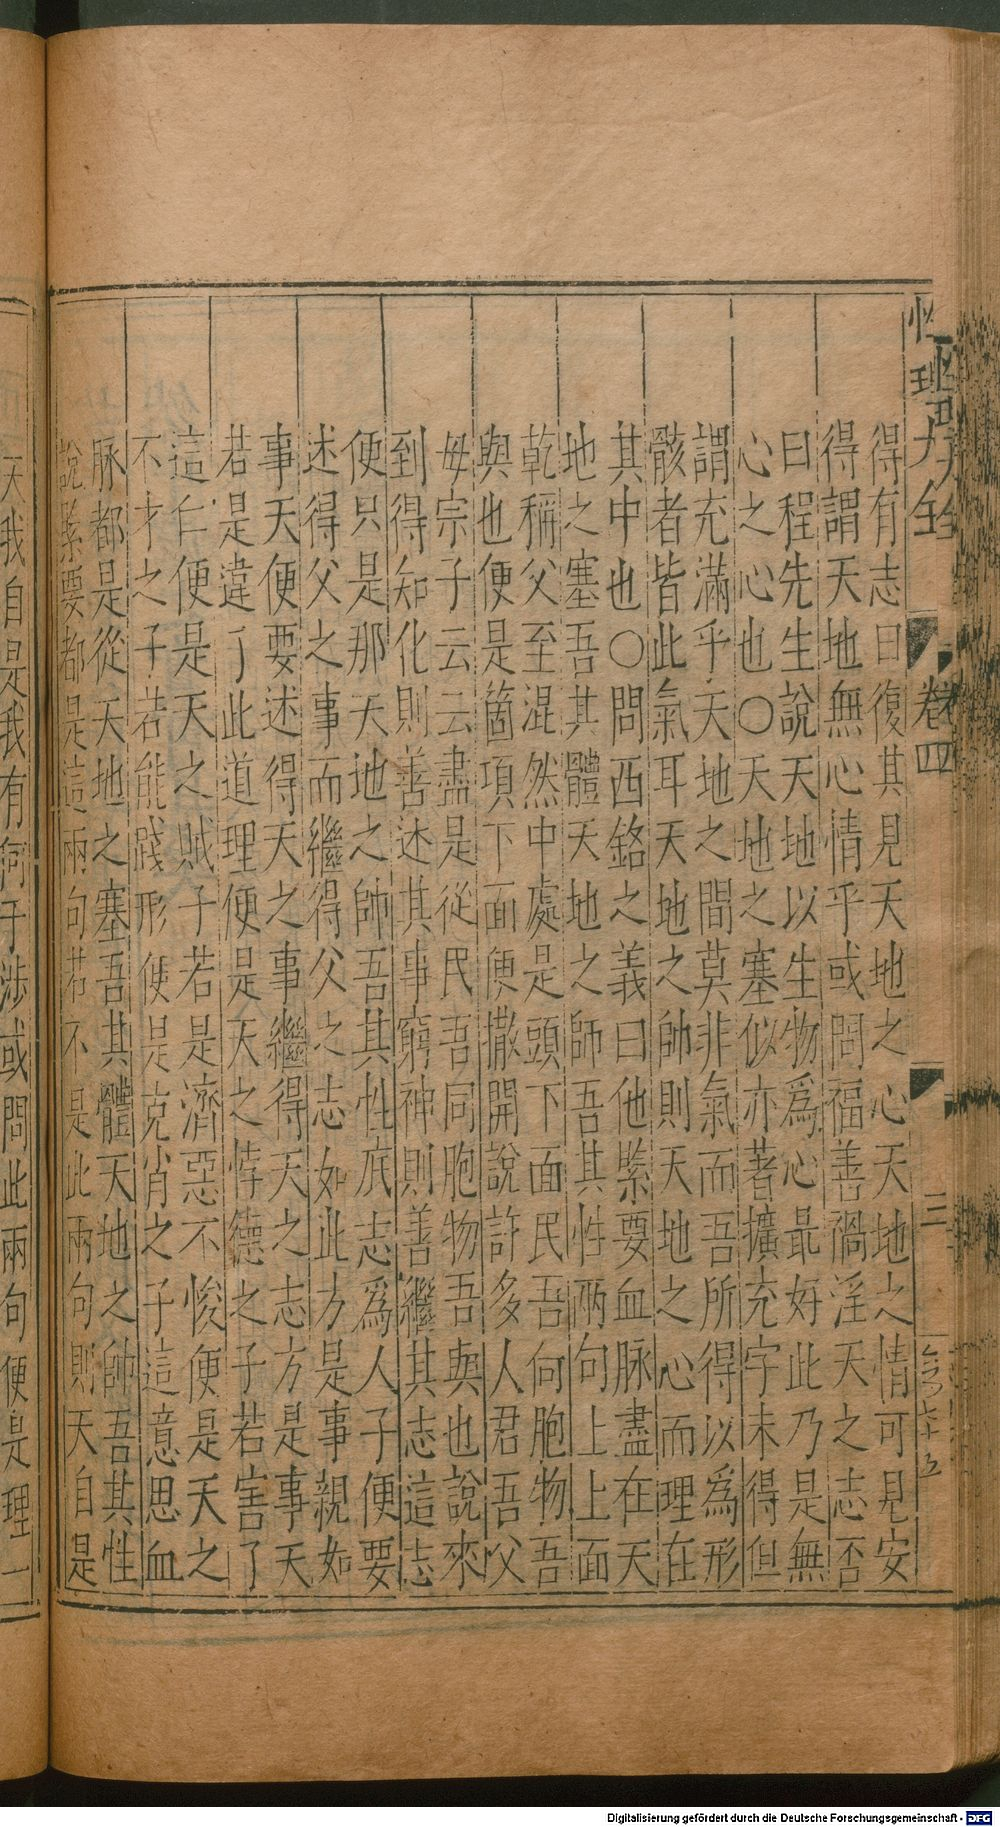 性理大全 卷四 三
得有志曰復其見天地之心天地之情可見安
得謂天地無心情乎或問福善禍淫天之志否
曰程先生說天地以生物爲心最好此乃是無
心之心也〇天地之塞似亦著擴充字未得但
謂充滿乎天地之間莫非氣而吾所得以爲形
骸者皆此氣耳天地之帥則天地之心而理在
其中也〇問西銘之義曰他緊要血脉盡在天
地之塞吾其體天地之帥吾其性兩句上上面
乾稱父至混然中處是頭下面民吾同胞物吾
與也便是箇項下面便撒開說許多人君吾父
母宗子云云盡是從民吾同胞物吾與也說來
到得知化則善述其事窮神則善繼其志這志
便只是那天地之帥吾其性底志爲人子便要
述得父之事而繼得父之志如此方是事親如
事天便要述得天之事繼得天之志方是事天
若是違了此道理便是天之悖德之子若害了
這仁便是天之賊子若是濟惡不悛便是天之
不才之子若能踐形便是克肖之子這意思血
脉都是從天地之塞吾其體天地之帥吾其性
說緊要都是這兩句若不是此兩句則天自是
天我自是我有何干涉或問此兩句便是理一
Digitalisierung gefördert durch die Deutsche Forschungsgemeinschaft - DFG